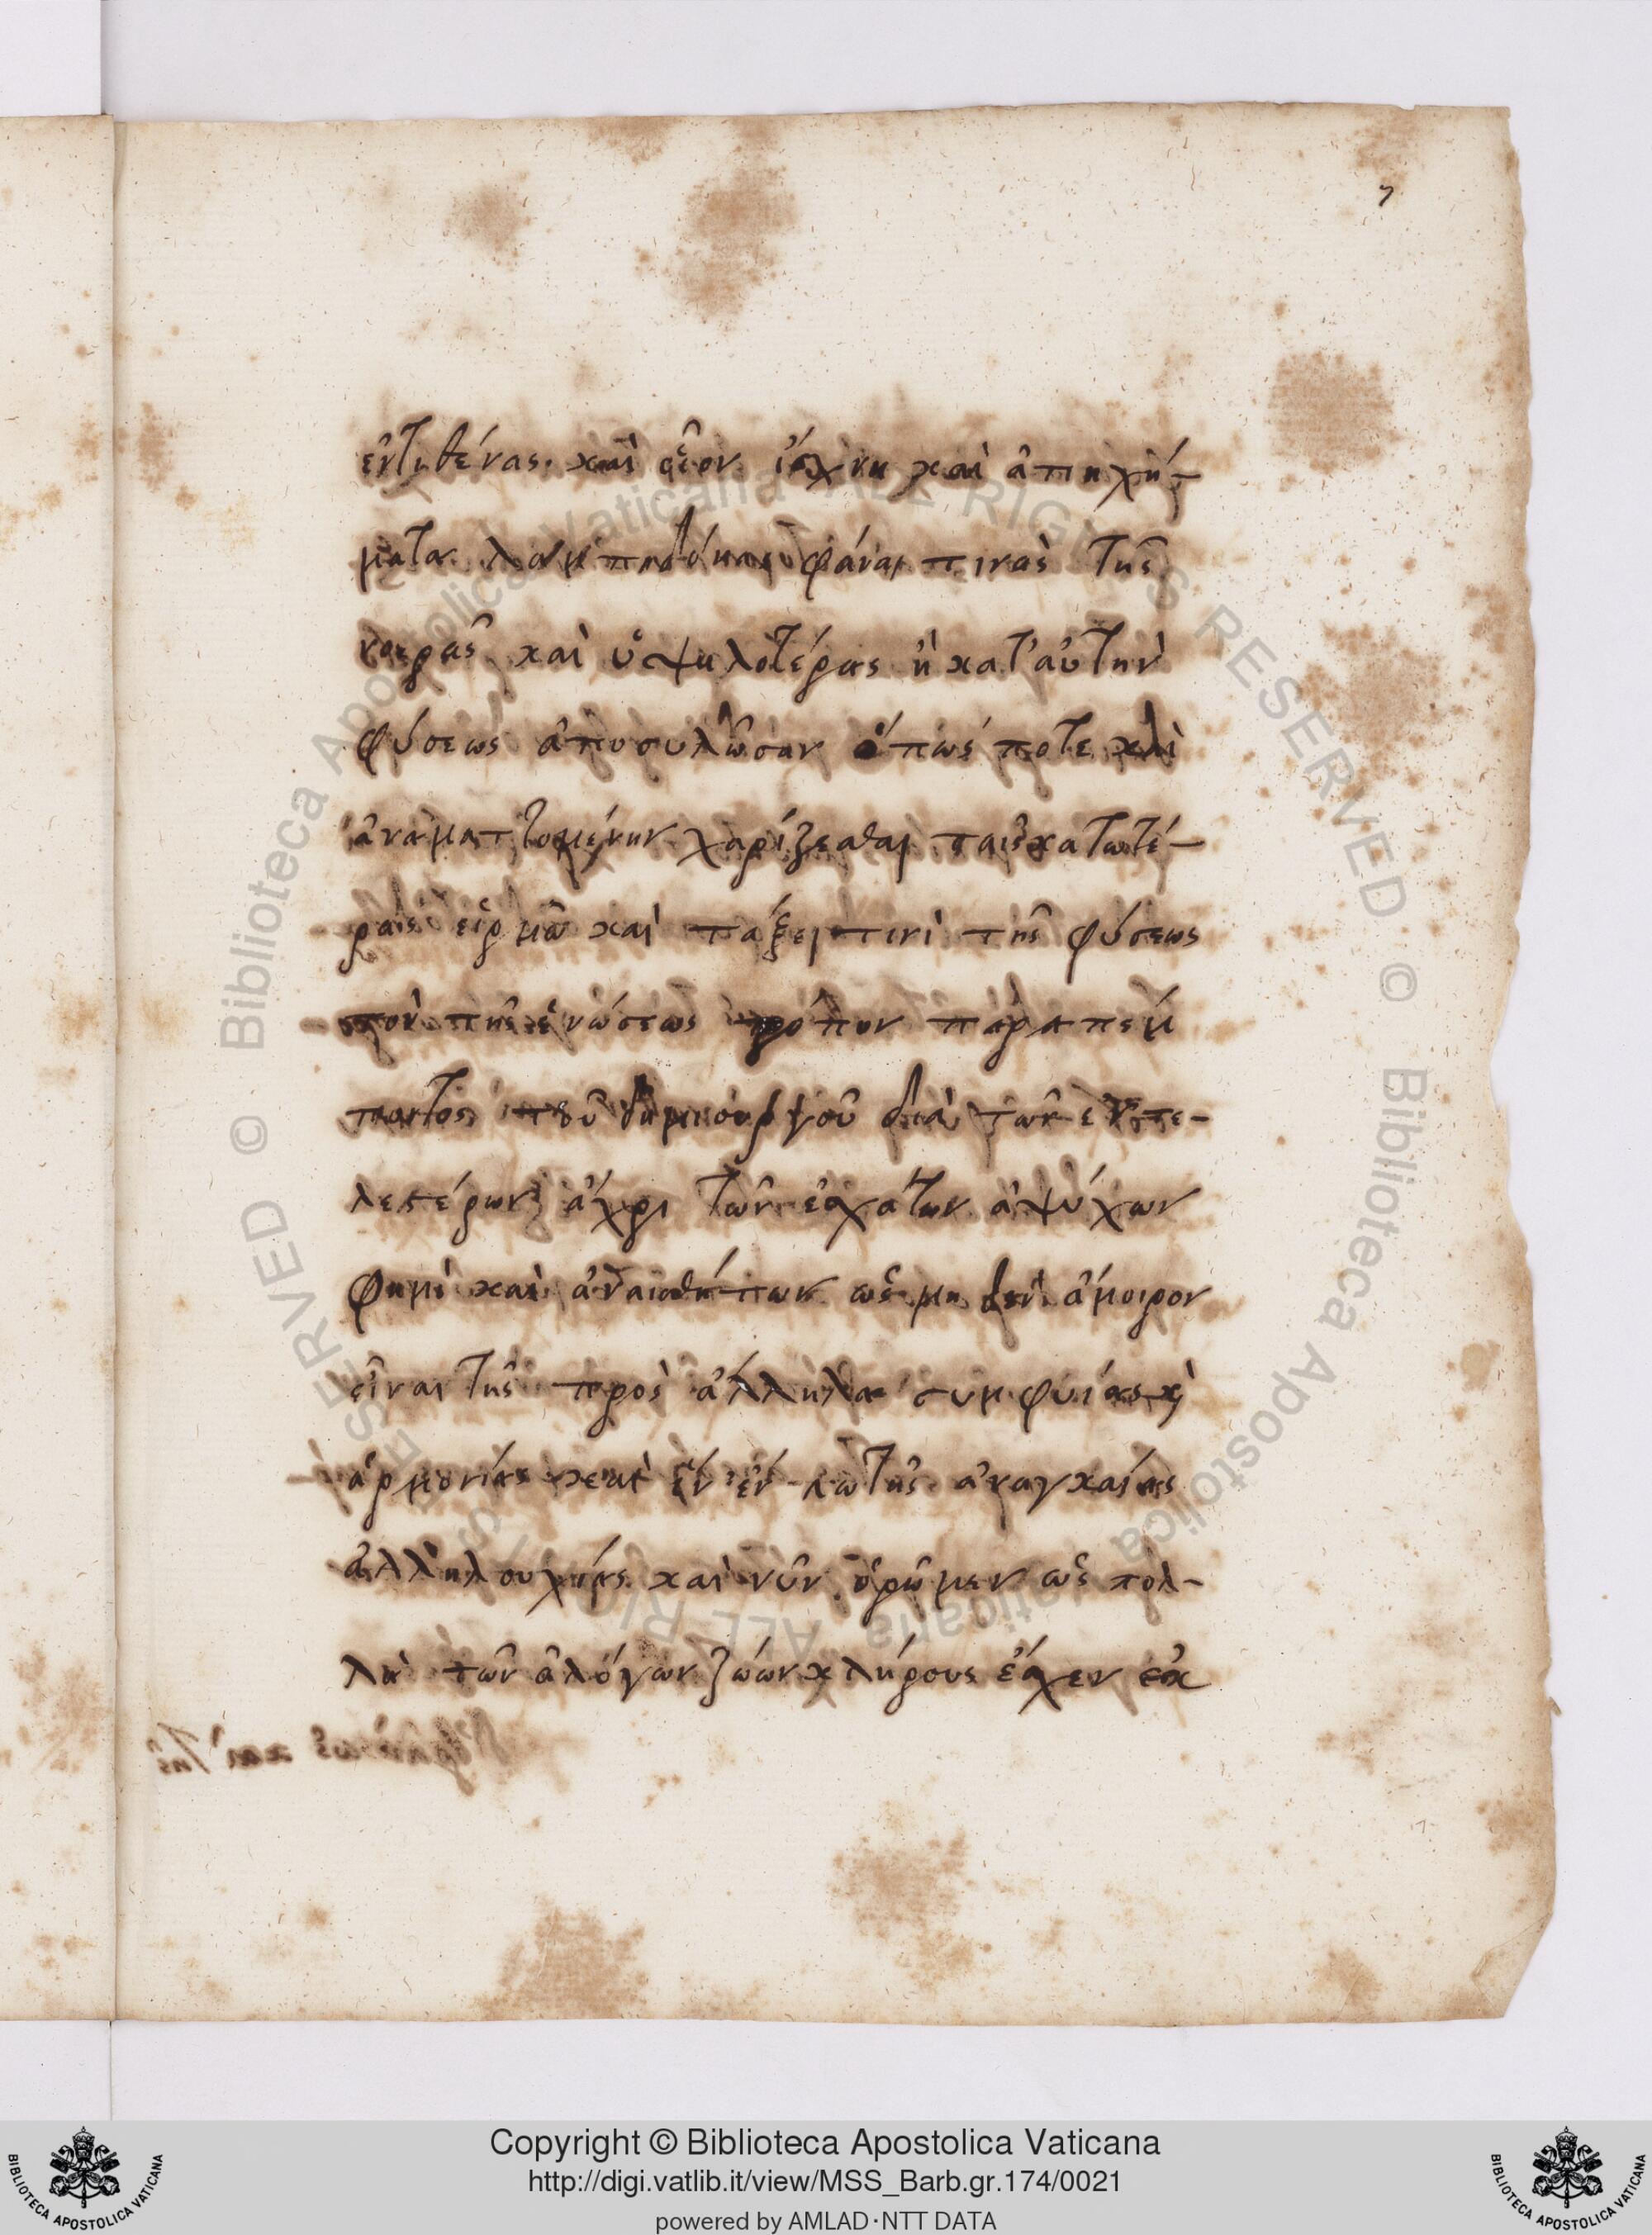 7
ἐντιθέναι καὶ οἷον ἴχνη καὶ ἀπηχή-
ματα λαμπηδόνας φάναι τινὰς τῆς
νοερᾶς καὶ ὑψηλοτέρας ἢ κατ' αὐτὴν
φύσεως ἀποσυλῶσαν ὁπωσποτε καὶ
ἀναματτομένην χαρίζεσθαι ταῖς κατωτέ-
ραις εἱρμῶ καὶ τάξει τινὶ τῆς φύσεως
τὸν τῆς ἑνώσεως τρόπον παραπέμ
ποντος τοῦ δημιουργοῦ διὰ τῶν ἐντε-
λεστέρων ἄχρι τῶν ἐσχάτων ἀψύχων
φημὶ καὶ ἀναισθήτων ὡς μηδὲν ἄμοιρον
εἶναι τῆς πρὸς ἄλληλα συμφυίας κὶ
ἁρμονίας καὶ τῆς ἀναγκαίας
ἀλληλουχίας καὶ νῦν ὁρῶμεν ὡς πολ-
λὰ τῶν ἀλόγων ζώων κλήρους ἔσχεν ἐκ
Copyright © Biblioteca Apostolica Vaticana
http://digi.vatlib.it/view/MSS_Barb.gr.174/0021
powered by AMLAD·NTT DATA
BIBLIOTECA APOSTOLICA VATICANA
BIBLIOTECA APOSTOLICA VATICANA
© Biblioteca Apostolica Vaticana ALL RIGHTS RESERVED
© Biblioteca Apostolica Vaticana ALL RIGHTS RESERVED